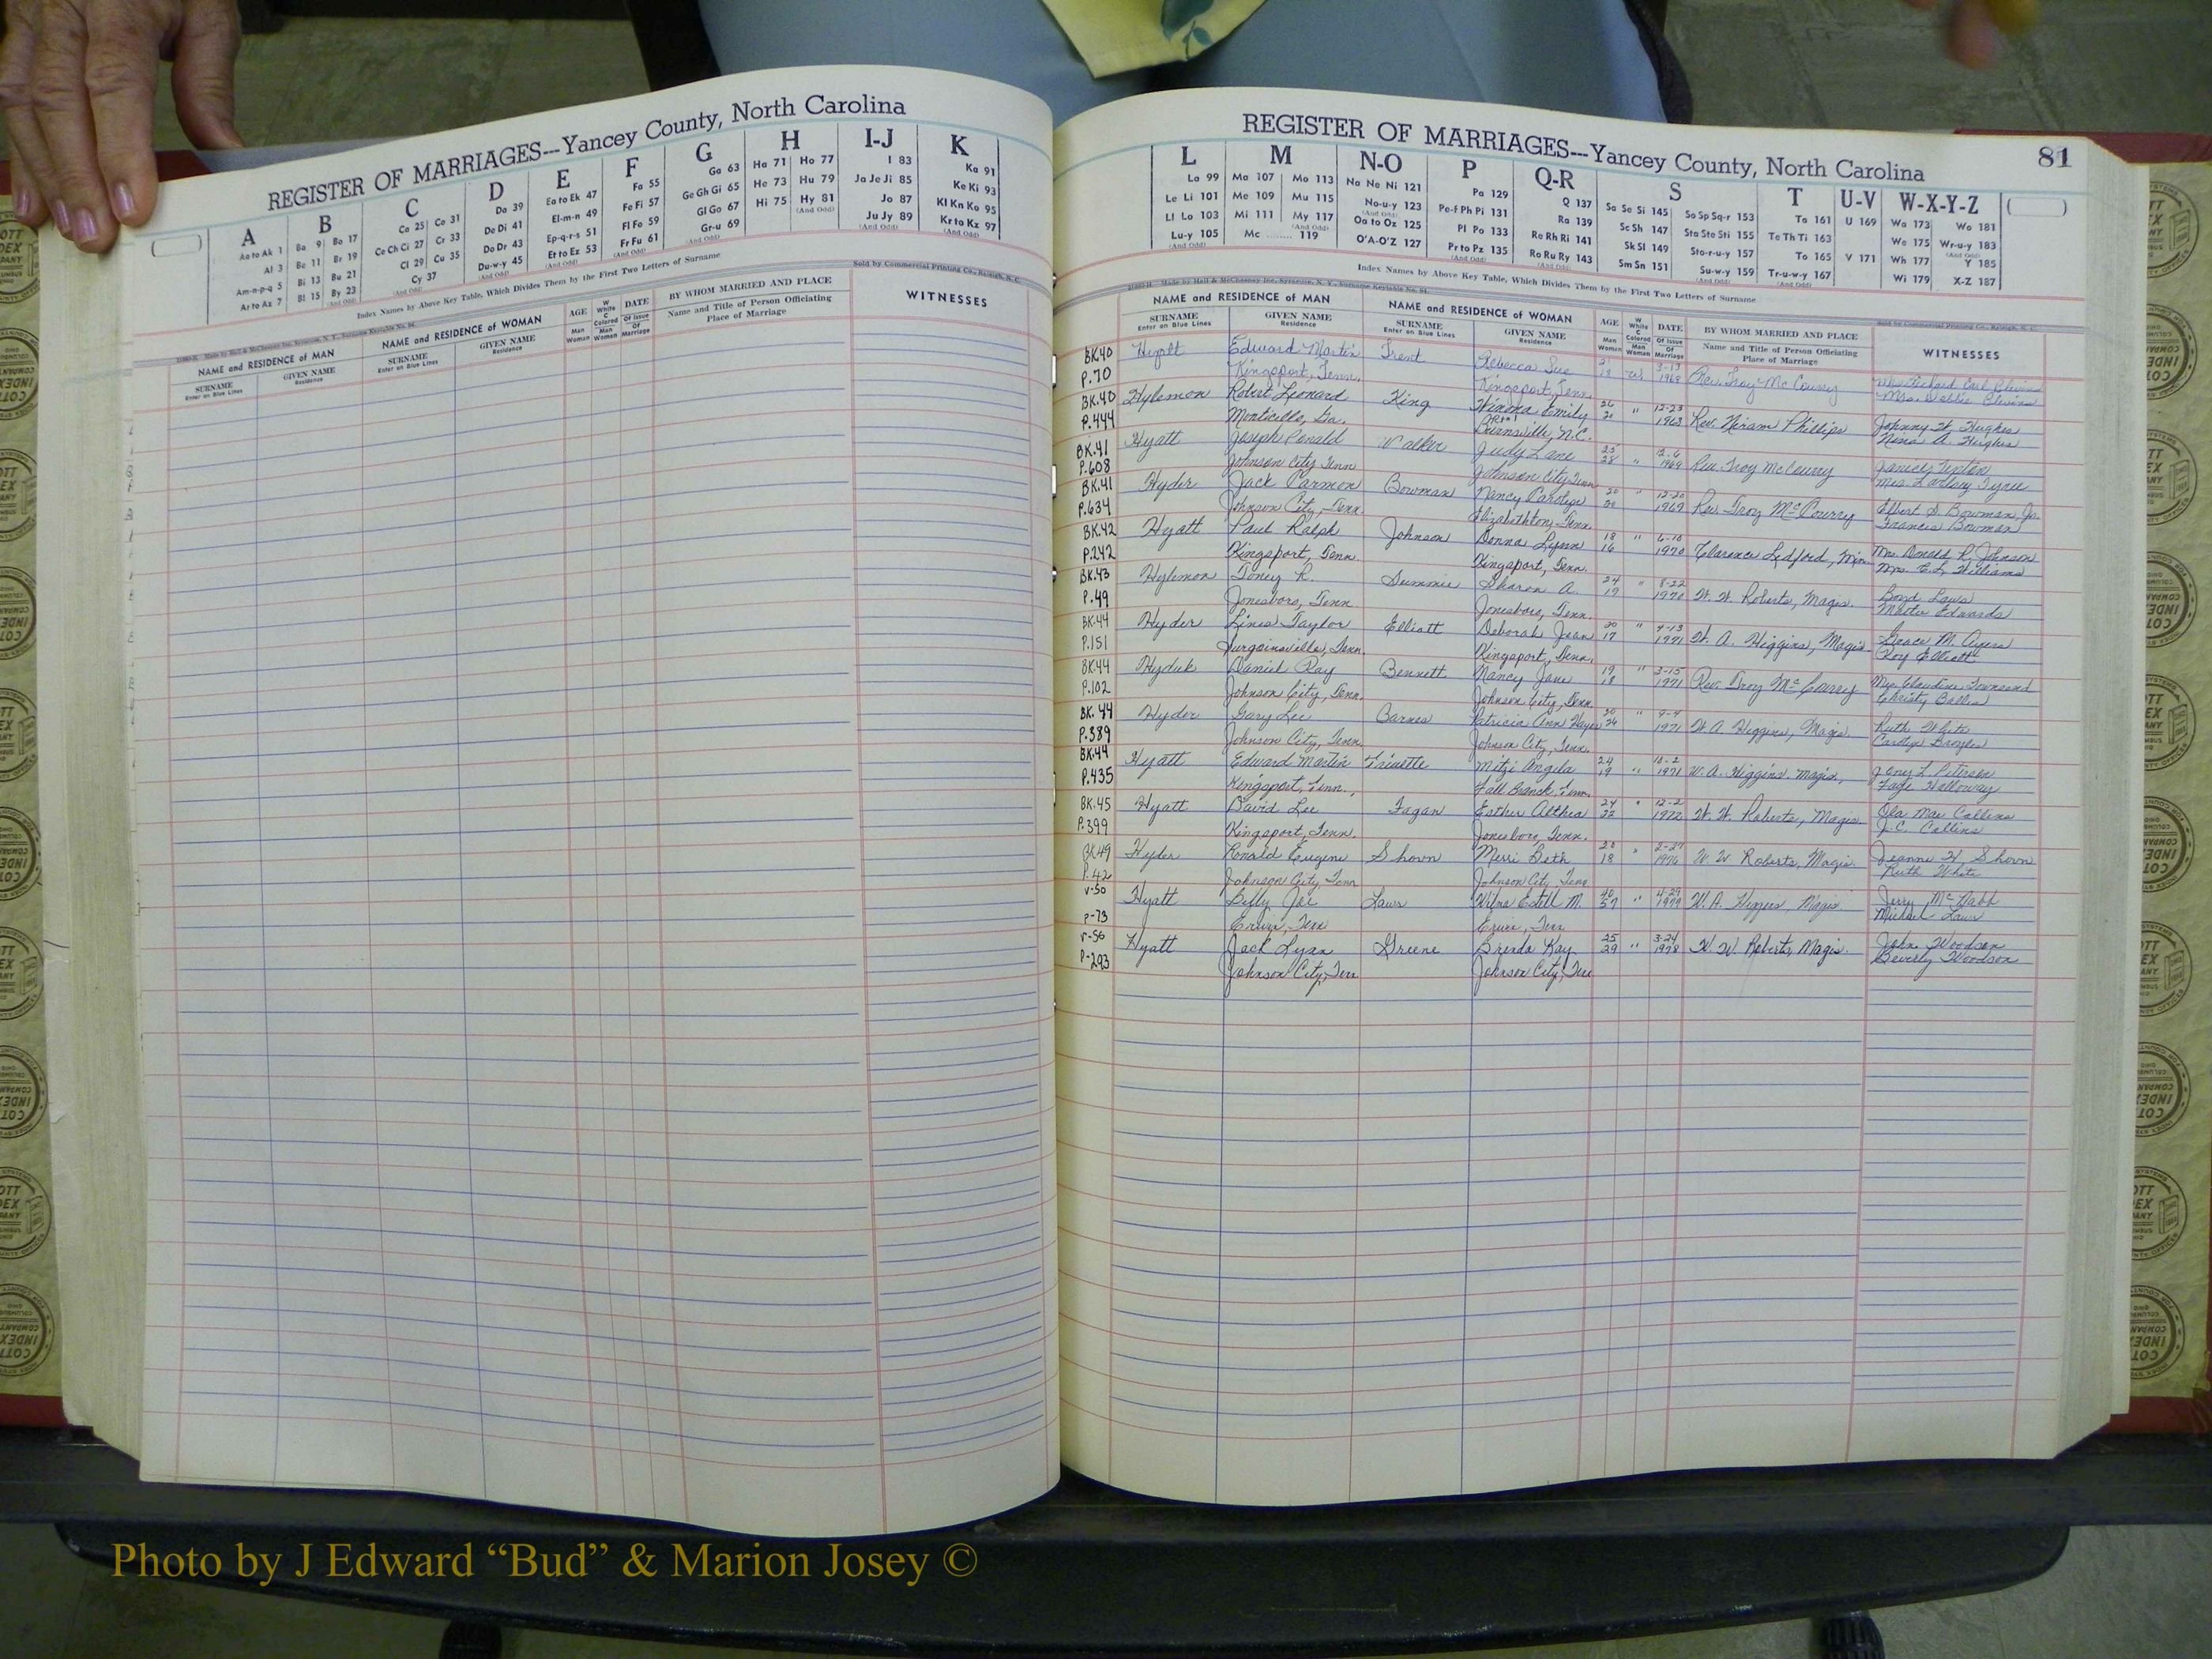 REGISTER OF MARRIAGES---Yancey County, North Carolina
A B C D E F G H I-J K
Aa to Ak 1
Al 3
Am-n-p-q 5
Ar to Az 7
Ba 9 Bo 17
Be 11 Br 19
Bi 13 Bu 21
Bl 15 By 23
(And Odd)
Ca 25 Co 31
Ce Ch Ci 27 Cr 33
Cl 29 Cu 35
Cy 37
(And Odd)
Da 39
De Di 41
Do Dr 43
Du-w-y 45
(And Odd)
Ea to Ek 47
El-m-n 49
Ep-q-r-s 51
Et to Ez 53
(And Odd)
Fa 55
Fe Fi 57
Fl Fo 59
Fr Fu 61
(And Odd)
Ga 63
Ge Gh Gi 65
Gl Go 67
Gr-u 69
(And Odd)
Ha 71 Ho 77
He 73 Hu 79
Hi 75 Hy 81
(And Odd)
I 83
Ja Je Ji 85
Jo 87
Ju Jy 89
(And Odd)
Ka 91
Ke Ki 93
Kl Kn Ko 95
Kr to Kz 97
(And Odd)
Index Names by Above Key Table, Which Divides Them by the First Two Letters of Surname
Made by Hall & McChesney Inc., Syracuse, N. Y., Surname Keytable No. 94.
Sold by Commercial Printing Co., Raleigh, N. C.
NAME and RESIDENCE of MAN
SURNAME
Enter on Blue Lines
GIVEN NAME
Residence
NAME and RESIDENCE of WOMAN
SURNAME
Enter on Blue Lines
GIVEN NAME
Residence
AGE
Man
Woman
W
White
C
Colored
Man
Woman
DATE
Of Issue
Of
Marriage
BY WHOM MARRIED AND PLACE
Name and Title of Person Officiating
Place of Marriage
WITNESSES
REGISTER OF MARRIAGES---Yancey County, North Carolina
81
L M N-O P Q-R S T U-V W-X-Y-Z
La 99
Le Li 101
Ll Lo 103
Lu-y 105
(And Odd)
Ma 107 Mo 113
Me 109 Mu 115
Mi 111 My 117
(And Odd)
Mc ........ 119
Na Ne Ni 121
No-u-y 123
(And Odd)
Oa to Oz 125
O'A-O'Z 127
Pa 129
Pe-f Ph Pi 131
Pl Po 133
Pr to Pz 135
(And Odd)
Q 137
Ra 139
Re Rh Ri 141
Ro Ru Ry 143
(And Odd)
Sa Se Si 145 So Sp Sq-r 153
Sc Sh 147 Sta Ste Sti 155
Sk Sl 149 Sto-r-u-y 157
Sm Sn 151 Su-w-y 159
(And Odd)
Ta 161
Te Th Ti 163
To 165
Tr-u-w-y 167
(And Odd)
U 169
V 171
Wa 173 Wo 181
We 175 Wr-u-y 183
(And Odd)
Wh 177 Y 185
Wi 179 X-Z 187
Index Names by Above Key Table, Which Divides Them by the First Two Letters of Surname
Made by Hall & McChesney Inc., Syracuse, N. Y., Surname Keytable No. 94.
Sold by Commercial Printing Co., Raleigh, N. C.
NAME and RESIDENCE of MAN
SURNAME
Enter on Blue Lines
GIVEN NAME
Residence
NAME and RESIDENCE of WOMAN
SURNAME
Enter on Blue Lines
GIVEN NAME
Residence
AGE
Man
Woman
W
White
C
Colored
Man
Woman
DATE
Of Issue
Of
Marriage
BY WHOM MARRIED AND PLACE
Name and Title of Person Officiating
Place of Marriage
WITNESSES
BK.40 Hyatt Edward Martin Trent Rebecca Sue W Rev. Troy McCourry Mrs. Richard Earl Blevins
P.70 Kingsport, Tenn. Kingsport, Tenn. 18 1968 Mrs. Debbie Blevins
BK.40 Hylemon Robert Leonard King Winona Emily 26 " 12-23 Rev. Hiram Phillips Johnny H. Hughes
P.444 Monticello, Ga. Burnsville, N.C. 20 1968 Nena A. Hughes
BK.41 Hyatt Joseph Renald Walker Judy Lane 25 " 12-6 Rev. Troy McCourry Janice
P.608 Johnson City Tenn Johnson City Tenn 28 1969 Mrs.
BK.41 Hyder Jack Carmon Bowman Nancy Carolyn 20 " 12-20 Rev. Troy McCourry Albert S. Bowman, Jr.
P.634 Johnson City, Tenn. Elizabethton, Tenn. 20 1969 Frances Bowman
BK.42 Hyatt Paul Ralph Johnson Donna Lynn 18 " 6-10 Clarence Ledford, Min. Mrs. Donald R. Johnson
P.242 Kingsport, Tenn. Kingsport, Tenn. 16 1970 Mrs. E.L. Williams
BK.43 Hylemon Toney R. Summie Sharon A. 24 " 8-22 W. W. Roberts, Magis. Boyd Laws
P.49 Jonesboro, Tenn. Jonesboro, Tenn. 19 1970 Edwards
BK.44 Hyder Taylor Elliott Deborah Jean 20 " 4-13 W. A. Higgins, Magis. Grace M. Ayers
P.151 Surgoinsville, Tenn. Kingsport, Tenn. 17 1971 Roy Elliott
BK.44 Hyduk Daniel Ray Bennett Nancy Jane 19 " 3-15 Rev. Troy McCourry Mrs. Claudine Townsend
P.102 Johnson City, Tenn. Johnson City, Tenn. 18 1971 Christy
BK. 44 Hyder Gary Lee Barnes Patricia Ann Hayes 20 " 9-4 W.A. Higgins, Magis. Ruth White
P.389 Johnson City, Tenn. Johnson City, Tenn. 24 1971 Carolyn Broyles
BK.44 Hyatt Edward Martin Trivette Mitzi Angela 24 " 10-2 W.A. Higgins, Magis, L. Peterson
P.435 Kingsport, Tenn., Fall Branch, Tenn. 19 1971 Faye Holloway
BK.45 Hyatt David Lee Fagan Esther Althea 24 " 12-2 W. W. Roberts, Magis. Ola Mae Collins
P.399 Kingsport, Tenn. Jonesboro, Tenn. 22 1972 J.C. Collins
BK.49 Hyder Ronald Eugene Shown Merri Beth " 2-27 W. W. Roberts, Magis. Jeanne H. Shown
P.42 Johnson City Tenn Johnson City, Tenn 18 1976 Ruth White
V-50 Hyatt Billy Joe Laws Wilma Estell M. 40 " 4-29 W.A. Higgins, Magis. Jerry McNabb
P-73 Erwin, Tenn Erwin, Tenn 57 Michael Laws
V-56 Hyatt Jack Lynn Greene Brenda Kay 25 " 3-24 W.W. Roberts, Magis. John Woodson
P-293 Johnson City, Tenn Johnson City, Tenn 29 1978 Beverly Woodson
Photo by J Edward “Bud” & Marion Josey ©